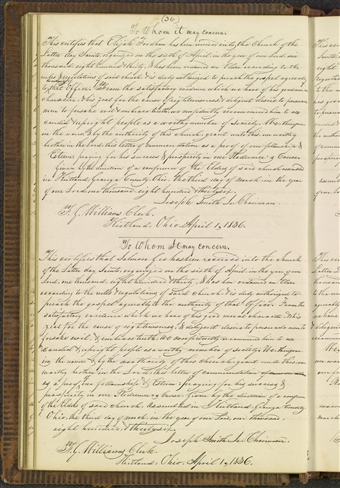 (36)
To Whom it may concern.
This certifies that Elijah Fordham has been received into the Church of the
Latter day Saints, organized on the sixth of April, in the year of our Lord one
thousand, eight hundred & thirty, & has been ordained an Elder according to the
rules & regulations of said church & is duly authorized to preach the gospel agreeably
to the authority of that office. From the satisfactory evidence which we have of his good moral
character, & his zeal for the cause of righteousness, & diligent desire to persuade
men to forsake evil & embrace truth, we confidently recommend him to all
candid & upright people as a worthy member of society. We therefore
in the name & by the authority of this church grant unto this our worthy
brother in the Lord this letter of commendation as a proof of our fellowship &
Esteem: praying for his success & prosperity in our Redeemer's Cause.
Given by the direction of a conference of the Elders of said church assembled
in Kirtland, Geauga County, Ohio, the third day of March, in the year
of our Lord one thousand, eight hundred & thirty six.
Joseph Smith Jr. Chairman.
F. G. Williams Clerk.
Kirtland, Ohio April 1, 1836.
To Whom It may concern.
This certifies that Salmon Gee has been received into the church
of the Latter day Saints, organized on the sixth of April in the year of our
Lord, one thousand, eight hundred & thirty, & has been ordained an Elder
according to the rules & regulations of said church, & is duly authorized to
preach the gospel agreeably to the authority of that office. From the
satisfactory evidence which we have of his good moral character, & his
zeal for the cause of righteousness, & diligent desire to persuade men to
forsake evil & embrace truth, we confidently recommend him to all
candid & upright people as a worthy member of society. We therefore
in the name & by the authority of this church grant unto this our
worthy brother in the Lord this letter of commendation
as a proof of our fellowship & Esteem: praying for his success &
prosperity in our Redeemer's cause. Given by the direction of a conference
of the Elders of said church assembled in Kirtland, Geauga County
Ohio, the third day of March in the year of our Lord, one thousand,
eight hundred & thirty six.
Joseph Smith Jr. Chairman.
F. G. Williams Clerk.
Kirtland, Ohio, April 1, 1836.